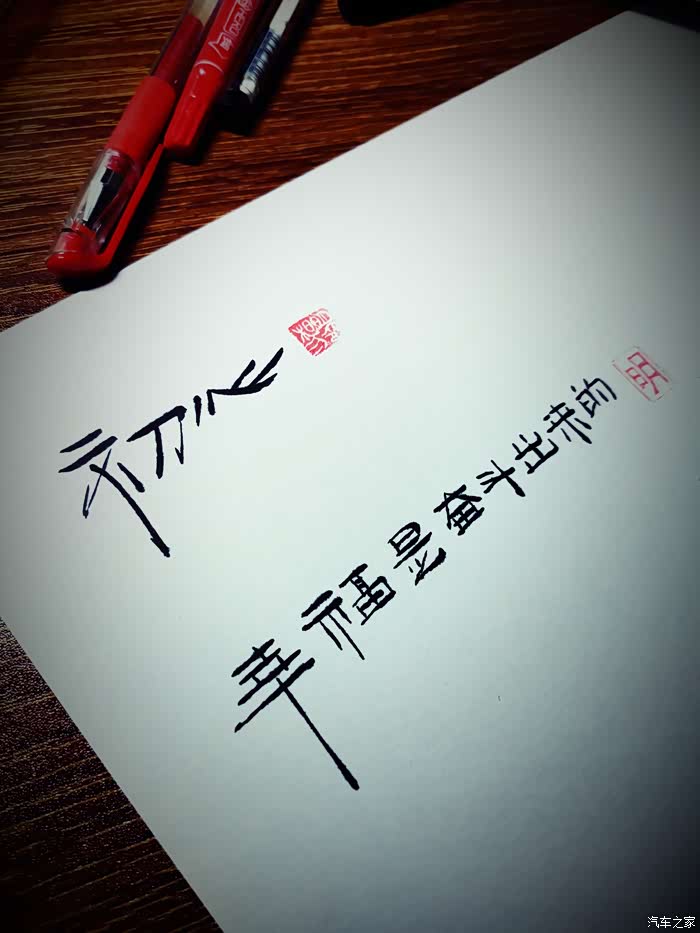 初心
幸福是奋斗出来的
汽车之家